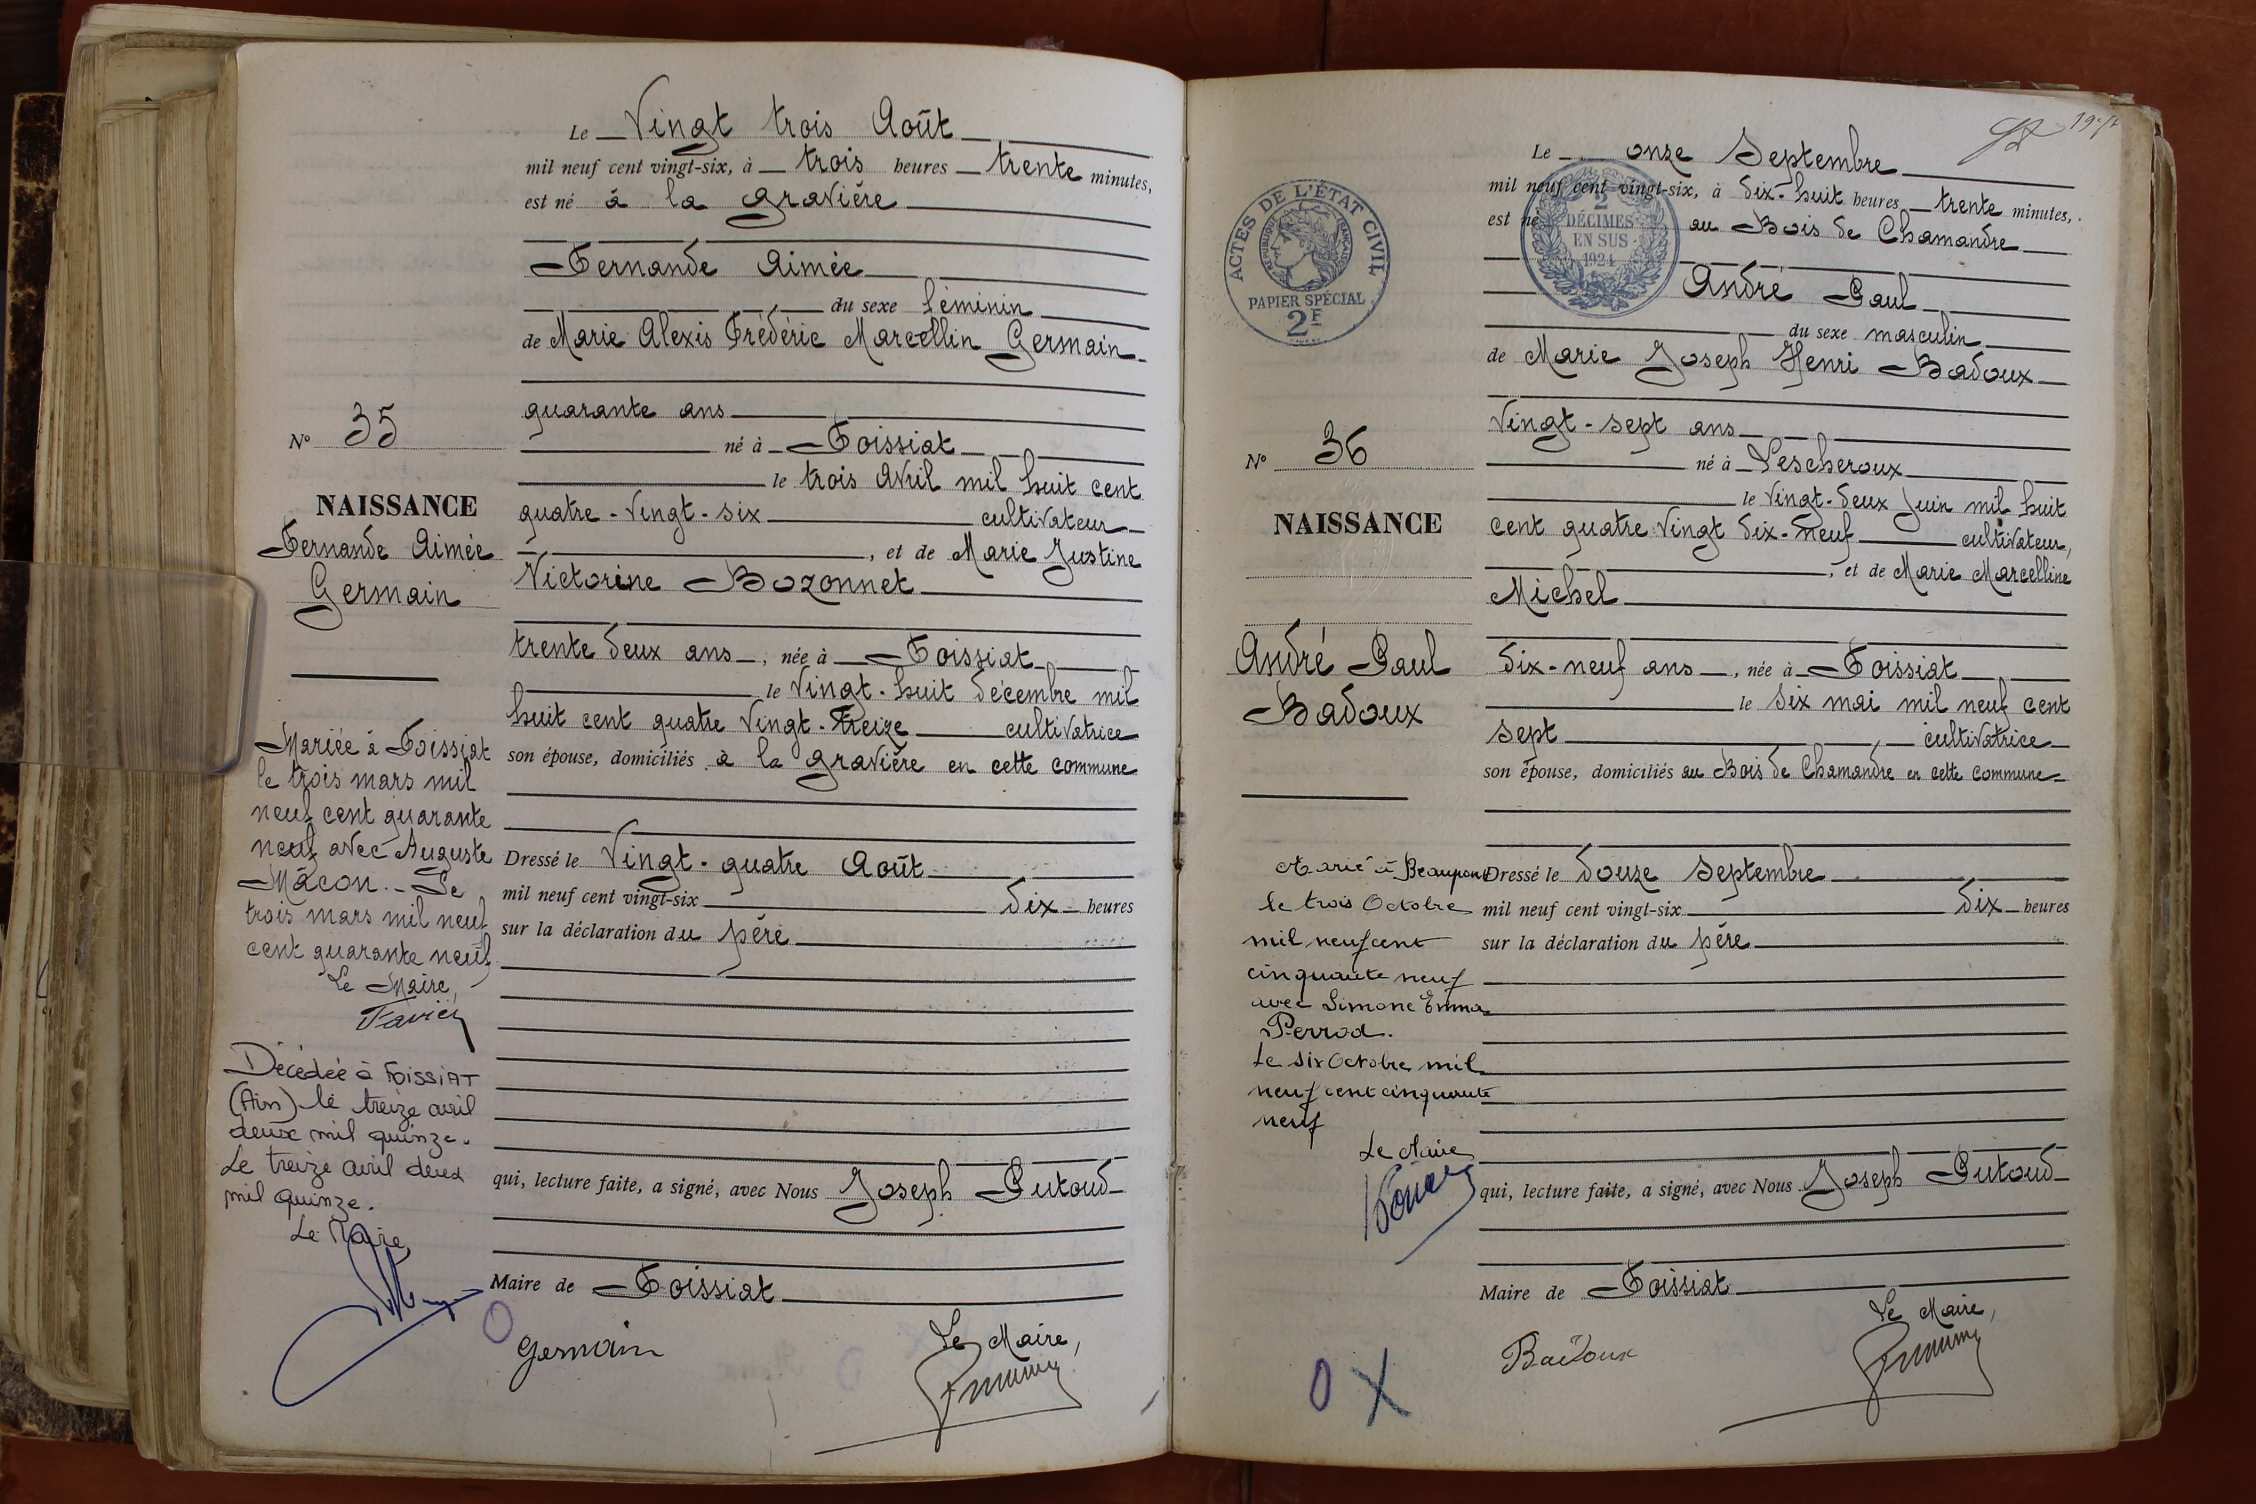 Le Vingt trois Août
mil neuf cent vingt-six, à trois heures trente minutes,
est né à la gravière
Fernande Aimée
du sexe féminin
de Marie Alexis Frédéric Marcellin Germain
quarante ans
né à Foissiat
le trois Avril mil huit cent
quatre-vingt-six cultivateur
, et de Marie Justine
Victorine Bozonnet
trente deux ans, née à Foissiat
le vingt-huit décembre mil
huit cent quatre vingt-treize cultivatrice
son épouse, domiciliés à la gravière en cette commune
Dressé le Vingt-quatre Août
mil neuf cent vingt-six dix heures
sur la déclaration du père
qui, lecture faite, a signé, avec Nous Joseph Putoud
Maire de Foissiat
Germain
Le Maire,
N° 35
NAISSANCE
Fernande Aimée
Germain
Mariée à Foissiat
le trois mars mil
neuf cent quarante
neuf avec Auguste
Mâcon. - Le
trois mars mil neuf
cent quarante neuf
Le Maire,
Favier
Décédée à FOISSIAT
(Ain) le treize avril
deux mil quinze.
Le treize avril deux
mil quinze.
Le Maire,
ACTES DE L'ÉTAT CIVIL
RÉPUBLIQUE FRANÇAISE
PAPIER SPÉCIAL
2F
2
DÉCIMES
EN SUS
1924
Le onze Septembre
mil neuf cent vingt-six, à dix-huit heures trente minutes,
est né au Bois de Chamandre
André Paul
du sexe masculin
de Marie Joseph Henri Badoux
vingt-sept ans
né à Lescheroux
le vingt-deux Juin mil huit
cent quatre vingt dix-neuf cultivateur,
, et de Marie Marcelline
Michel
dix-neuf ans, née à Foissiat
le six mai mil neuf cent
sept cultivatrice
son épouse, domiciliés au Bois de Chamandre en cette commune
Dressé le douze Septembre
mil neuf cent vingt-six dix heures
sur la déclaration du père
qui, lecture faite, a signé, avec Nous Joseph Putoud
Maire de Foissiat
Badoux
Le Maire,
N° 36
NAISSANCE
André Paul
Badoux
Marié à Beaupont
le trois Octobre
mil neuf cent
cinquante neuf
avec Simone Emma
Perrod.
Le six Octobre mil
neuf cent cinquante
neuf
Le Maire
0 X